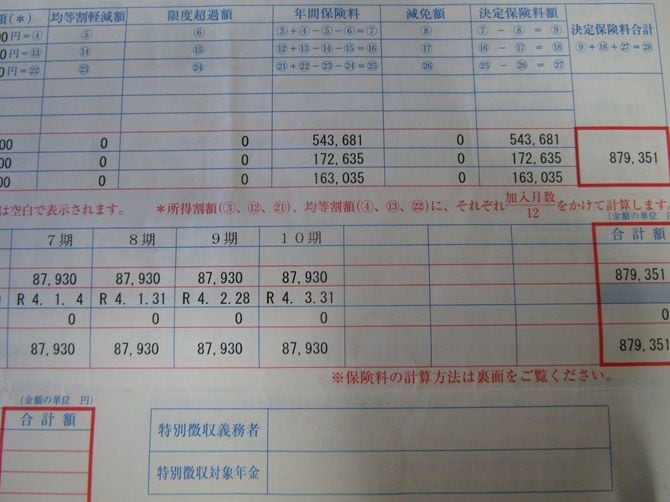 額(*) 均等割軽減額 限度超過額 年間保険料 減免額 決定保険料額 決定保険料合計
00円=④ ⑤ ⑥ ③+④-⑤-⑥=⑦ ⑧ ⑦ - ⑧ = ⑨ ⑨+⑱+㉗=㉘
0円=⑬ ⑭ ⑮ ⑫+⑬-⑭-⑮=⑯ ⑰ ⑯ - ⑰ = ⑱
0円=㉒ ㉓ ㉔ ㉑+㉒-㉓-㉔=㉕ ㉖ ㉕ - ㉖ = ㉗
00 0 0 543,681 0 543,681
00 0 0 172,635 0 172,635 879,351
00 0 0 163,035 0 163,035
は空白で表示されます。 *所得割額(③、⑫、㉑)、均等割額(④、⑬、㉒)に、それぞれ加入月数/12をかけて計算します。
(金額の単位
7期 8期 9期 10期 合計額
87,930 87,930 87,930 87,930 879,351
R 4. 1. 4 R 4. 1.31 R 4. 2.28 R 4. 3.31
0 0 0 0 0
87,930 87,930 87,930 87,930 879,351
※保険料の計算方法は裏面をご覧ください。
(金額の単位 円)
合計額
特別徴収義務者
特別徴収対象年金